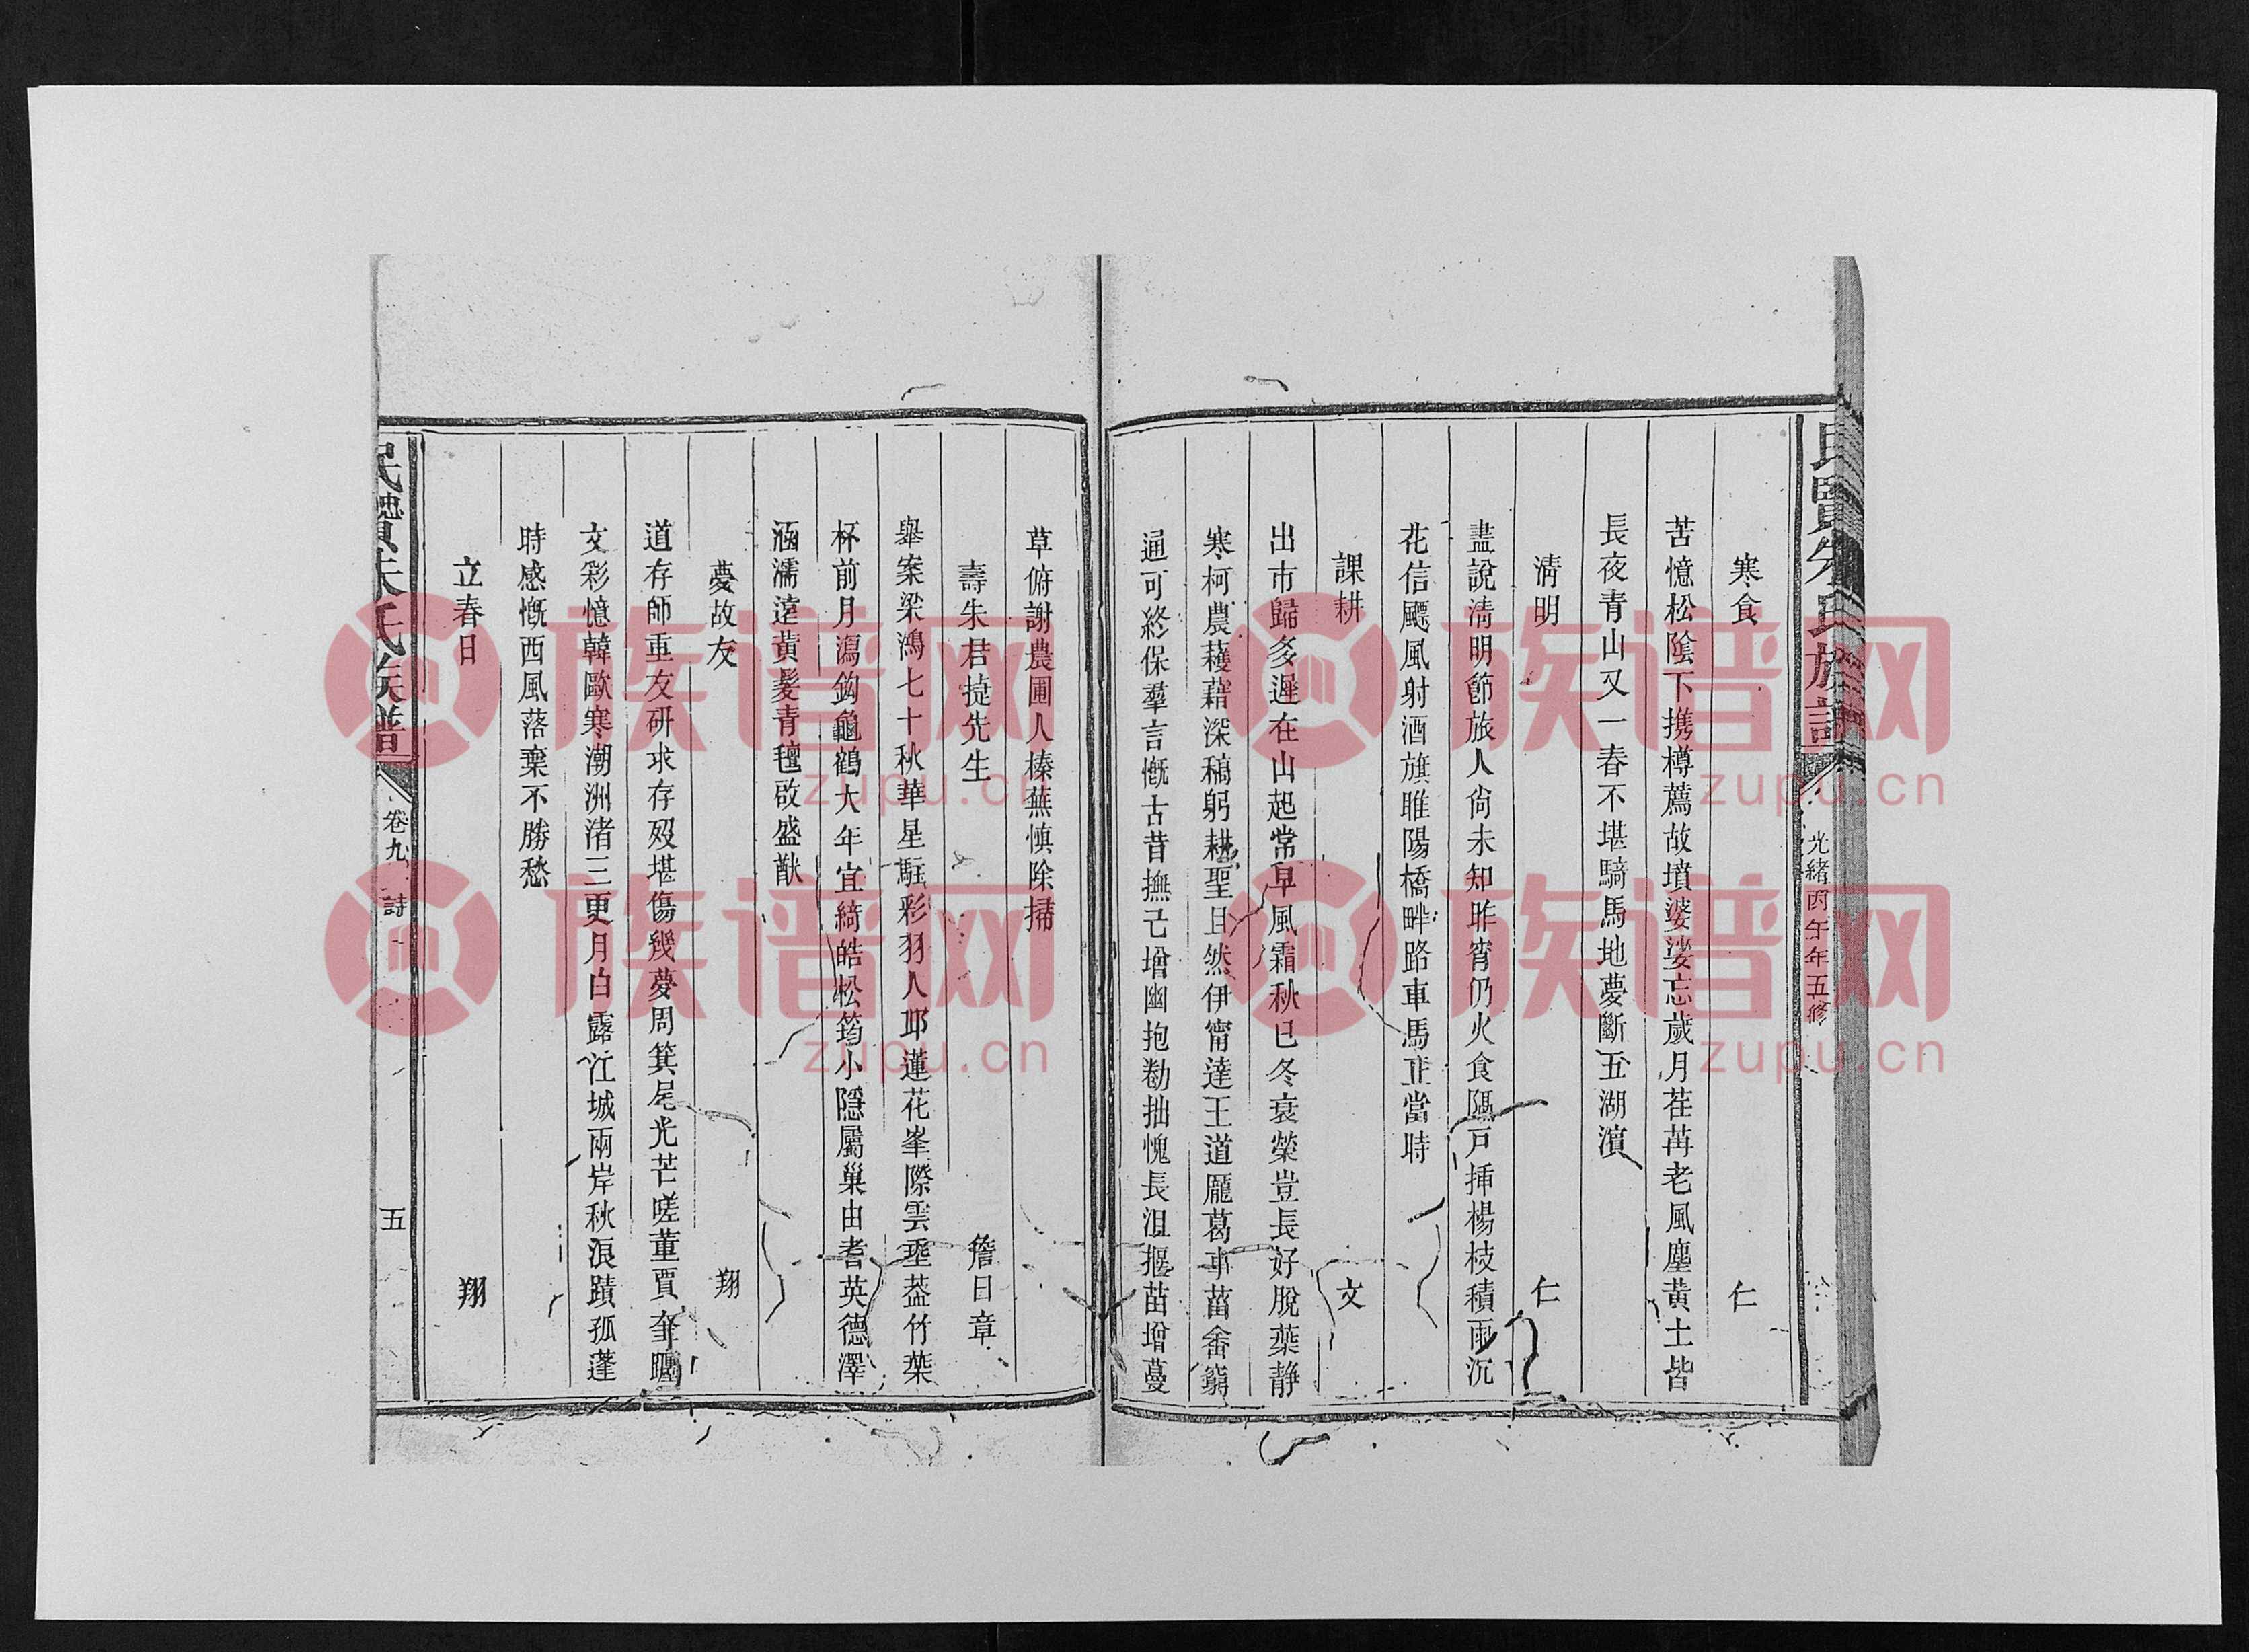 光緒丙午年五修
寒食 仁
苦憶松陰下携樽薦故墳婆娑忘歲月荏苒老風塵黃土皆
長夜青山又一春不堪騎馬地夢斷五湖濵
清明 仁
盡說清明節旅人尙未知昨宵仍火食隔戸挿楊枝積雨沉
花信颸風射酒旗睢陽橋畔路車馬正當時
課耕 文
出市歸多遲在山起常早風霜秋巳冬衰榮豈長好脫葉静
寒柯農穫藉深稿躬耕聖且然伊甯達王道龎葛事菑畬窮
通可終保羣言慨古昔撫己增幽抱勤拙愧長沮揠苗增蔓
草俯謝農圃人榛蕪慎除掃
壽朱君㨗先生 詹日章
舉案梁鴻七十秋華星駐彩羽人邱蓮花峯際雲垂葢竹葉
杯前月瀉鈎龜鶴大年宜綺皓松筠小隱屬巢由耆英德澤
涵濡遠黃髮青氊啟盛猷
夢故友 翔
道存師重友研求存殁堪傷幾夢周箕尾光芒嗟董賈奎𨇠
文彩憶韓歐寒潮洲渚三更月白露江城兩岸秋浪蹟孤蓬
時感慨西風落葉不勝愁
立春日 翔
朱氏族譜
卷九 詩
五
族谱网
zupu.cn
族谱网
zupu.cn
族谱网
zupu.cn
族谱网
zupu.cn